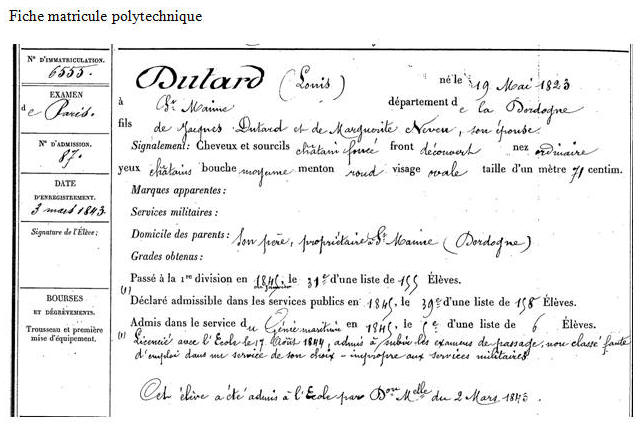 Fiche matricule polytechnique
N° D'IMMATRICULATION.
6555.
EXAMEN
de Paris.
N° D'ADMISSION.
87.
DATE
D'ENREGISTREMENT.
3 mars 1843.
Signature de l'Élève:
BOURSES
ET DÉGRÈVEMENTS.
Trousseau et première
mise d'équipement.
Dutard (Louis) né le 19 Mai 1823
à St Maime département de la Dordogne
fils de Jacques Dutard et de Marguerite Neveu, son épouse.
Signalement: Cheveux et sourcils châtain foncé front découvert nez ordinaire
yeux châtains bouche moyenne menton rond visage ovale taille d'un mètre 71 centim.
Marques apparentes:
Services militaires:
Domicile des parents: Son père, propriétaire à St Maime (Dordogne)
Grades obtenus:
Passé à la 1re division en 1845, le 31e d'une liste de 155 Élèves.
(1)
Déclaré admissible dans les services publics en 1845, le 39e d'une liste de 158 Élèves.
Admis dans le service du Génie maritime en 1845, le 5e d'une liste de 6 Élèves.
(1) Licencié avec l'Ecole le 17 Août 1844, admis à subir les examens de passage, non classé faute
d'emploi dans un service de son choix - impropre aux services militaires
Cet élève a été admis à l'Ecole par Don Melle du 2 Mars 1843.